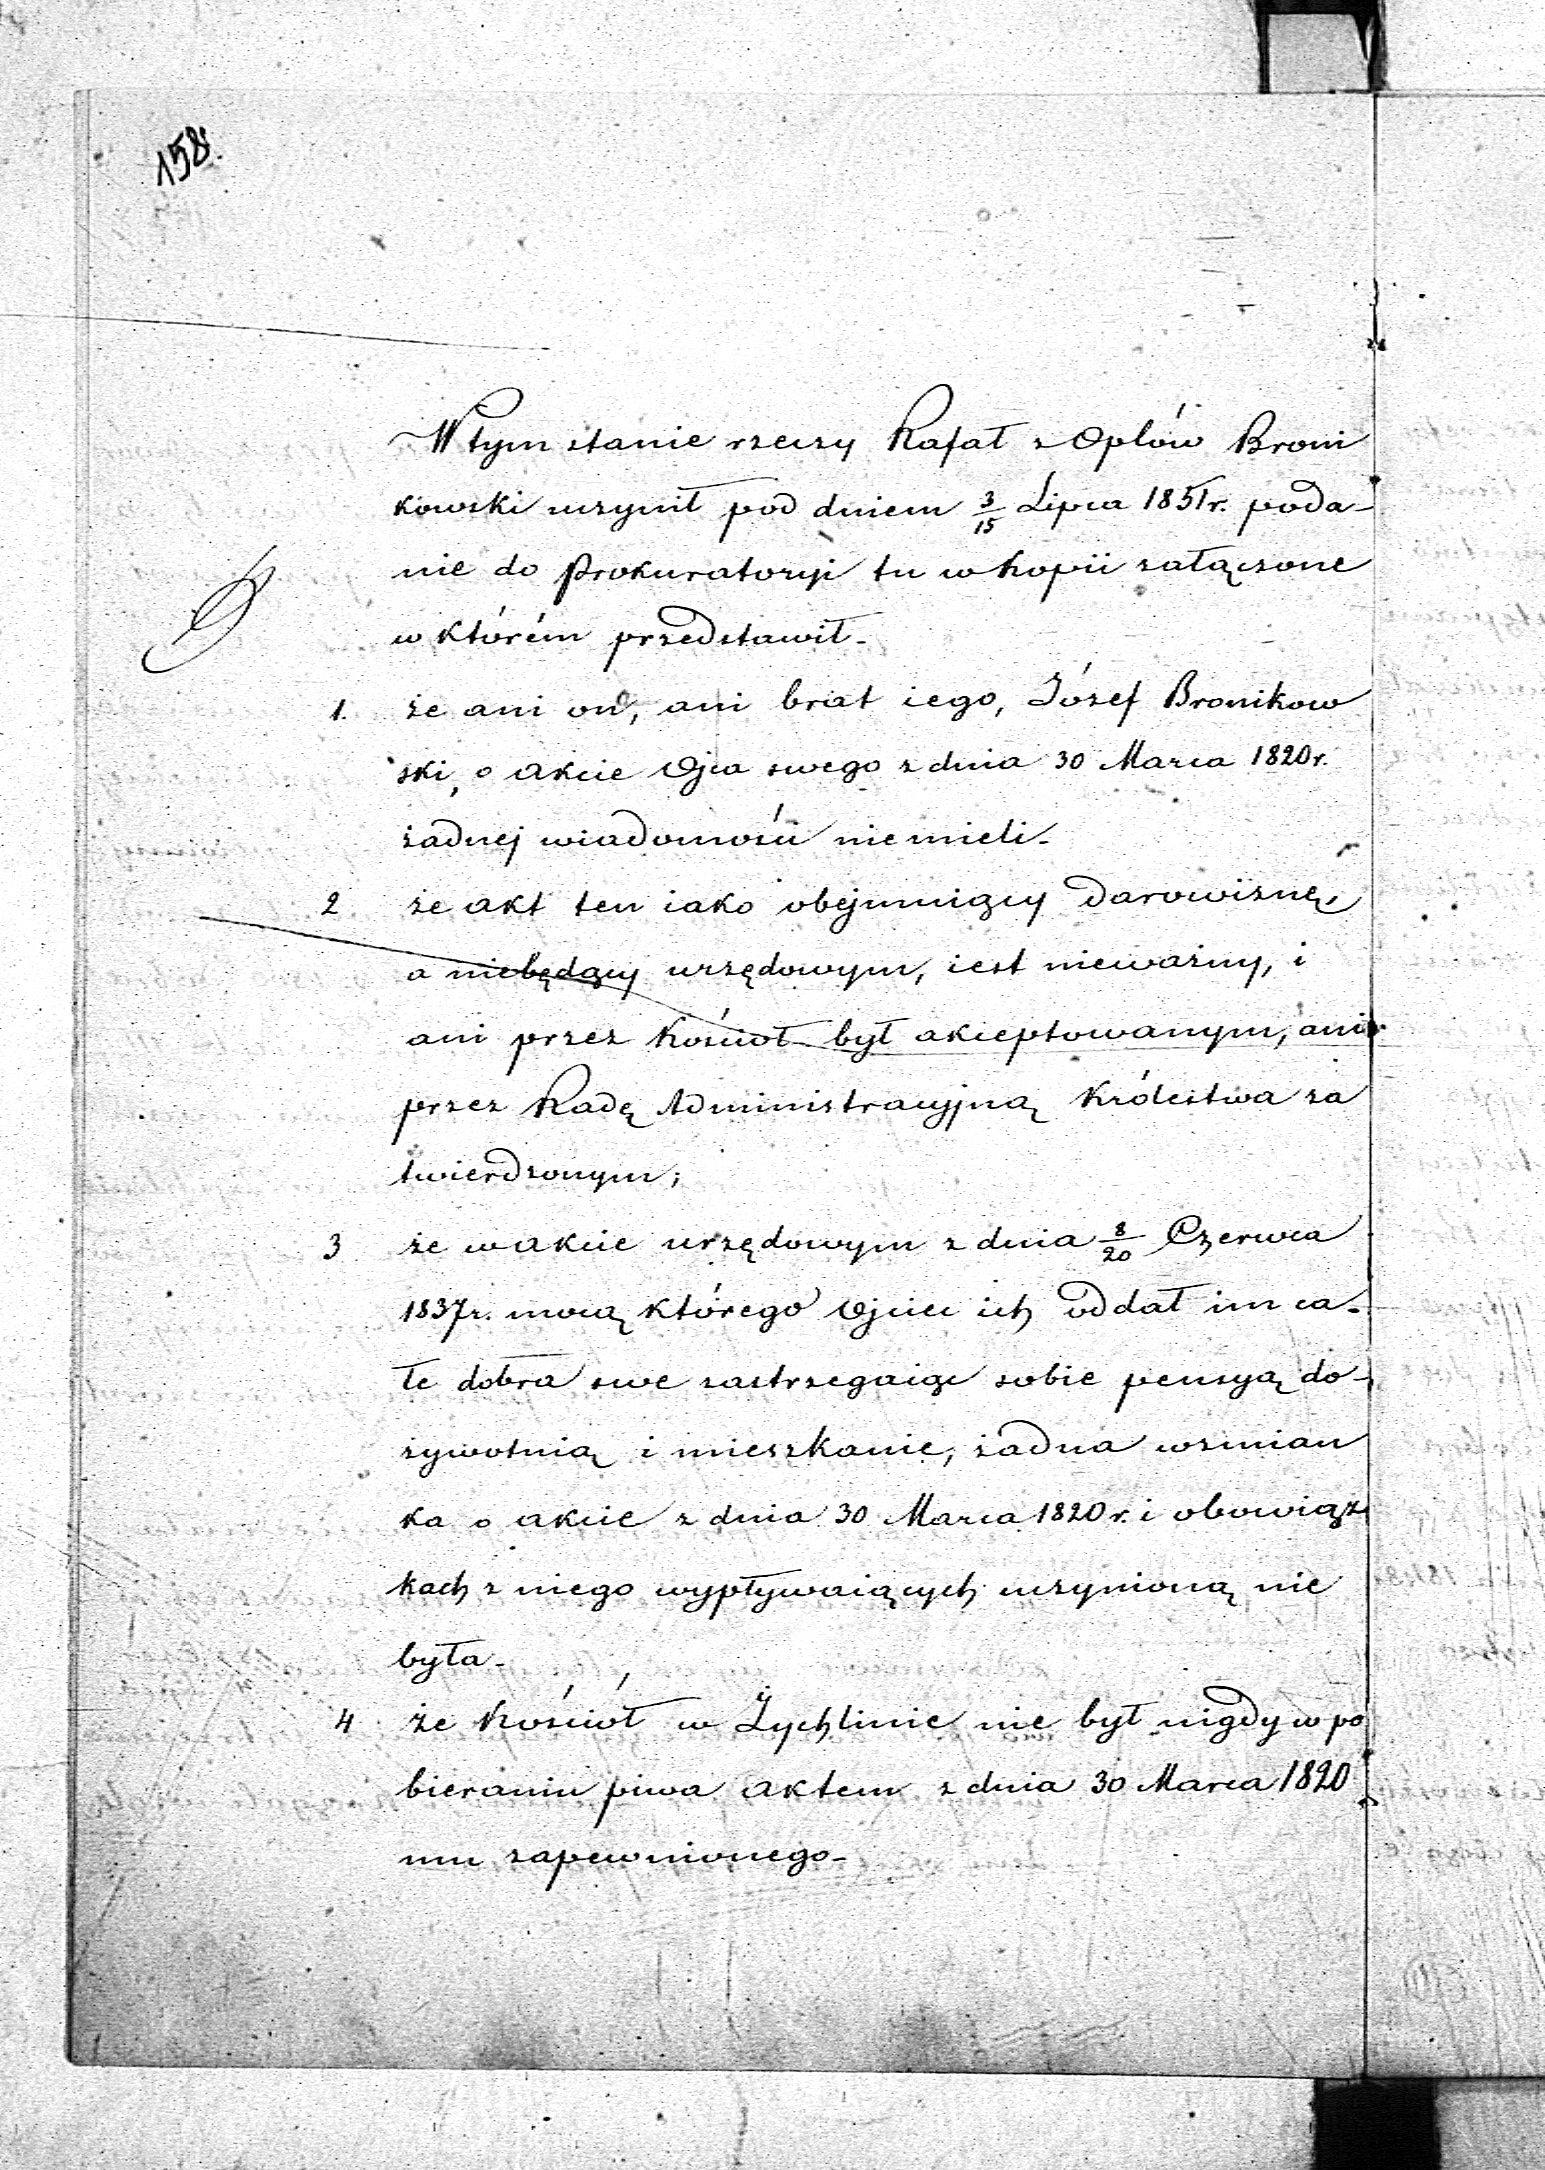 158.
W tym stanie rzeczy Rafał z Oplów Broni
kowski uczynił pod dniem 3/15 Lipca 1851 r. poda-
nie do Prokuratoryi tu w kopii załączone
w którém przedstawił-
1. że ani on, ani brat iego, Józef Bronikow
ski, o akcie Ojca swego z dnia 30 Marca 1820 r.
żadnej wiadomości nie mieli-
2 że akt ten iako obejmuiący darowiznę,
a niebędący urzędowym, iest nieważny, i
ani przez Kościoł był akceptowanym, ani
przez Radę Administracyjną Królestwa za
twierdzonym;
3 że w akcie urzędowym z dnia 8/20 Czerwca
1837 r. mocą którego Ojciec ich oddał im ca-
łe dobra swe zastrzegaiąc sobie pensyą do-
żywotnią i mieszkanie, żadna wzmian
ka o akcie z dnia 30 Marca 1820 r. i obowiąz
kach z niego wypływaiących uczynioną nie
była-
4 że Kościół w Żychlinie nie był nigdy w po
bieraniu piwa aktem z dnia 30 Marca 1820
mu zapewnionego-